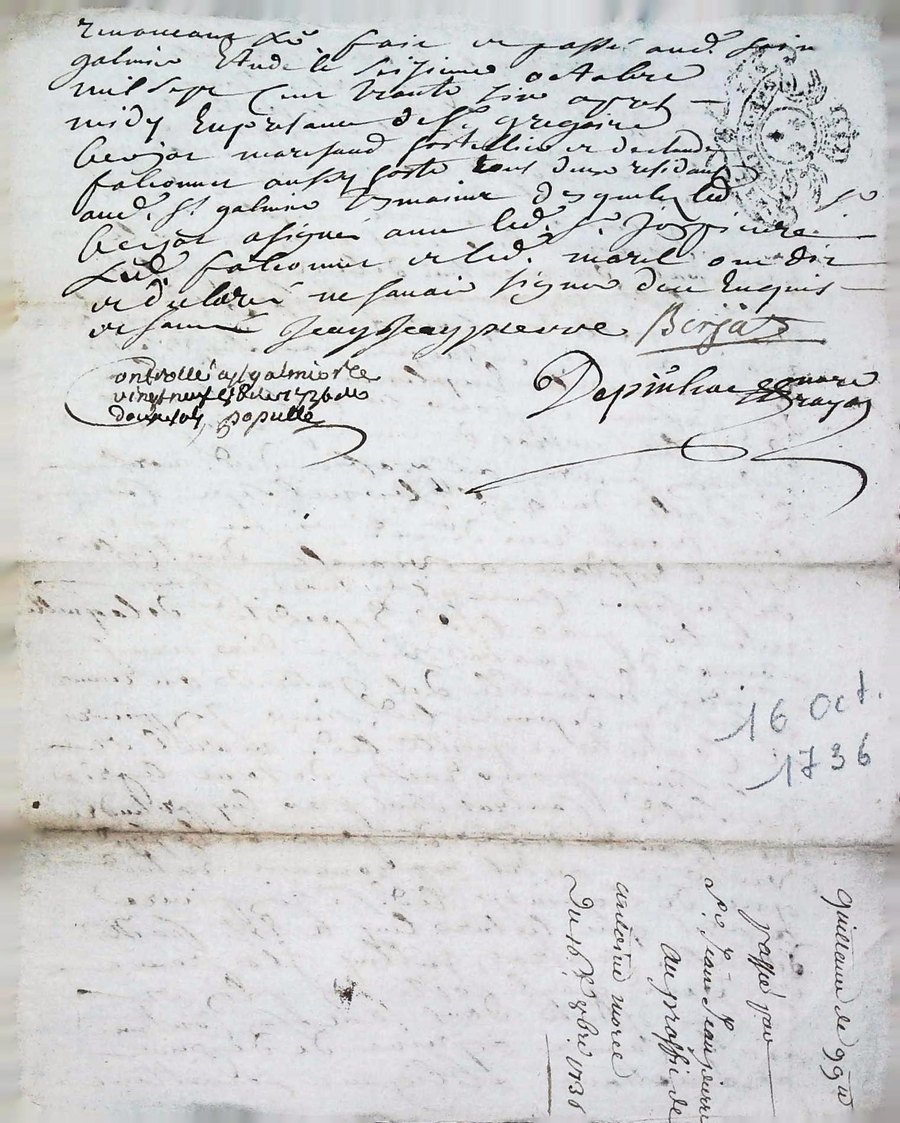 renonceans &c fait et passé aud. sain
galmier Etude le seizieme octobre
mil sept Cent trante six apret
midy En presance de sr. gregoire
berjat marchand hostellier et de claude
falconnet aussy hoste tous deux residant
aud. st galmier tesmoins desquelz led
berjat a signé avec led. sr. Jeanpierre
led falconnet et led. morel ont dit
et declaré ne savoir signer de ce Enquis
et sommé Jean Jeanpierre Berjat
ontrollé a st galmier le
vingt neuf 8bre 1736 de
douze sols populle
Depinhac
16 Oct.
1736
passé par
Sr. Jean Jeanpierre
au proffit de
antoine morel
Du 16e. 8bre. 1736